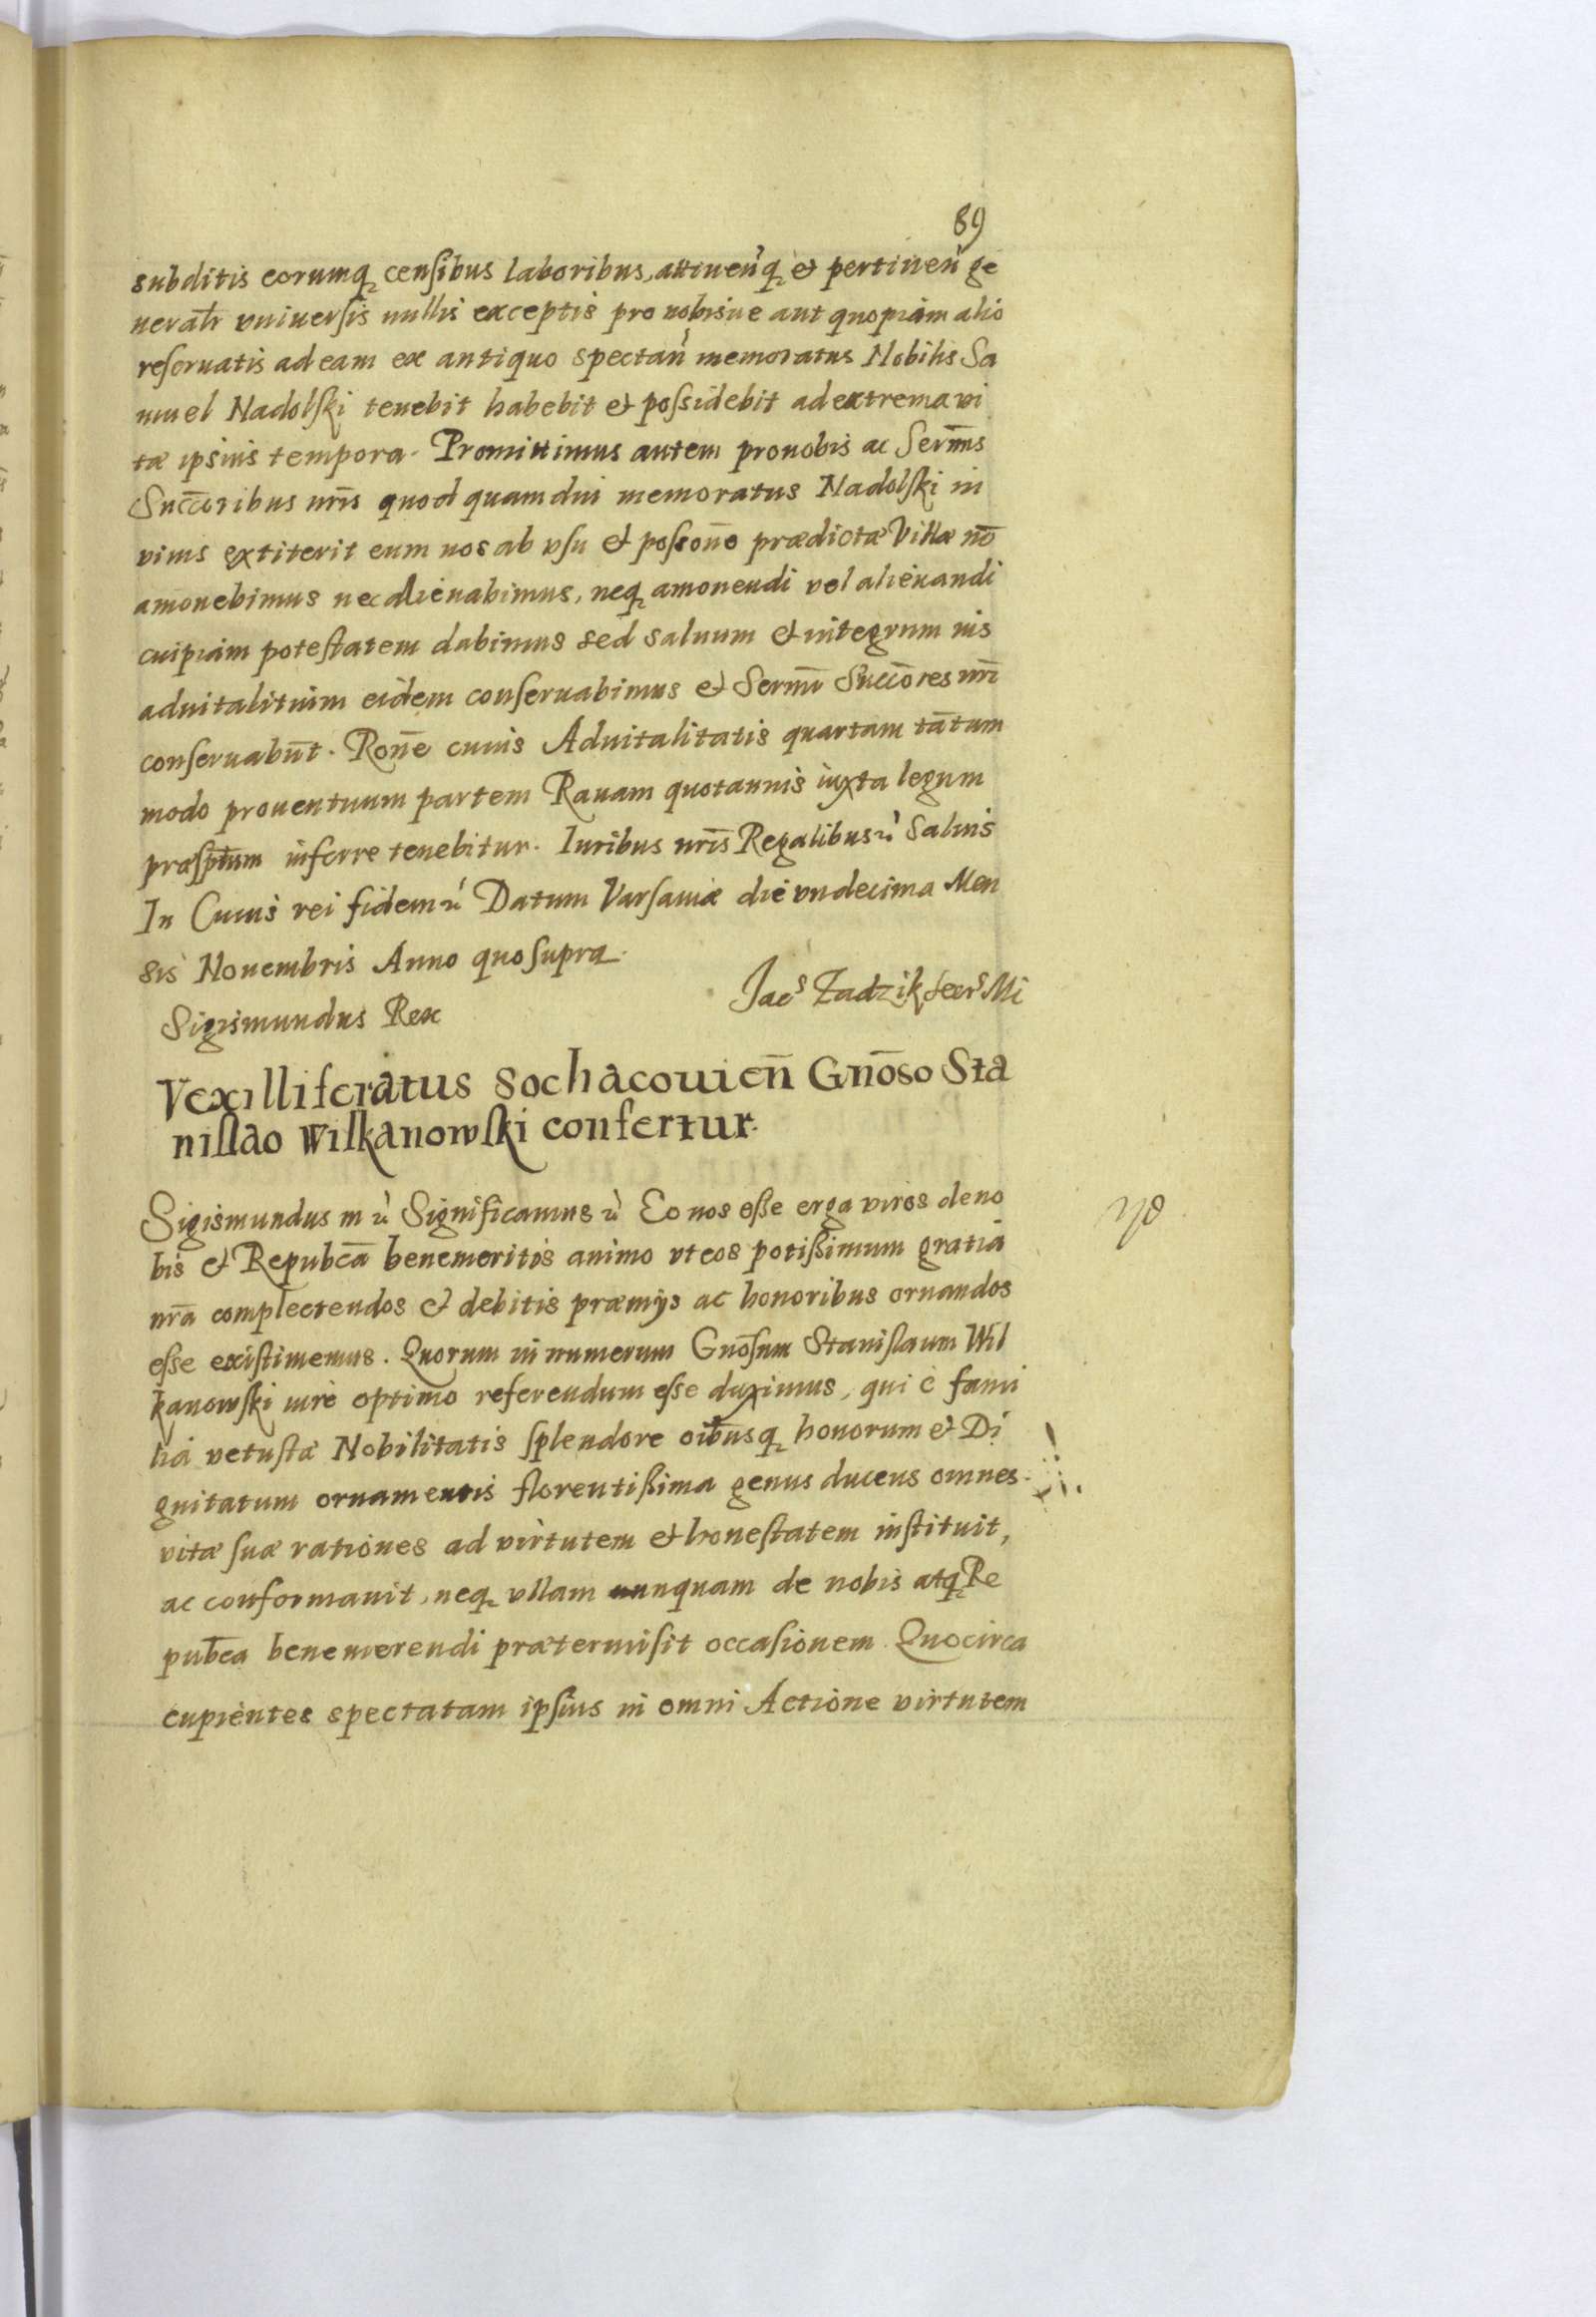 89
subditis eorumq censibus laboribus, attinen̄q et pertinen̄ ge
neral̄r vniuersis nullis exceptis pro nobisue aut quopiam alio
reseruatis ad eam ex antiquo spectan̄ memoratus Nobilis Sa
muel Nadolski tenebit habebit et possidebit ad extrema vi
tæ ipsius tempora. Promittimus autem pro nobis ac Serm̄is
Succ̄oribus nr̄is quod quamdiu memoratus Nadolski in
viuis extiterit eum nos ab vsu et posson̄e prædictæ Villæ nō
amouebimus nec alienabimus, neq amouendi vel alienandi
cuipiam potestatem dabimus sed saluum et integrum ius
aduitalitium eidem conseruabimus et Serm̄i Succ̄ores nr̄i
conseruabūt. Ron̄e cuius Aduitalitatis quartam tātum
modo prouentuum partem Rauam quotannis iuxta legum
præsp̄tum inferre tenebitur. Iuribus nr̄is Regalibus ꝛ̀ Saluis
In Cuius rei fidem ꝛ̀ Datum Varsauiæ die vndecima Men
sis Nouembris Anno quo supra.
Sigismundus Rex
Jac⁠s Zadzik Secr⁠s Mi
Vexilliferatus Sochacouien̄ Gn̄oso Sta
nislao Wilkanowski confertur.
Sigismundus m ꝛ̀ Significamus ꝛ̀ Eo nos esse erga viros de no
bis et Repubc̄a benemeritos animo vt eos potißimum gratia
nr̄a complectendos et debitis præmijs ac honoribus ornandos
esse existimemus. Quorum in numerum Gn̄osum Stanislaum Wil
kanowski iure optimo referendum esse duximus, qui è fami
lia vetustæ Nobilitatis splendore oīb̄usq honorum et Di
gnitatum ornamentis florentißima genus ducens omnes
vitæ suæ rationes ad virtutem et honestatem instituit,
ac conformauit, neq vllam nunquam de nobis atq Re
pub̄ca benemerendi prætermisit occasionem. Quocirca
cupientes spectatam ipsius in omni Actione virtutem